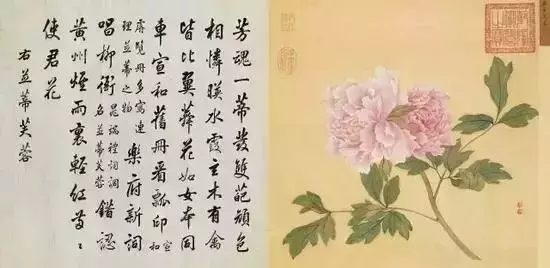 芳魂一蒂發雙葩色
相憐暎水霞木有禽
皆比翼蕣花如女本同
車宣和舊冊瓢印宣和
睿覽冊多寫連理並蒂之物樂府新詞
唱柳衙晁端禮詞調名並蒂芙蓉錯認
黃州煙雨裏輕紅
使君花
右並蒂芙蓉